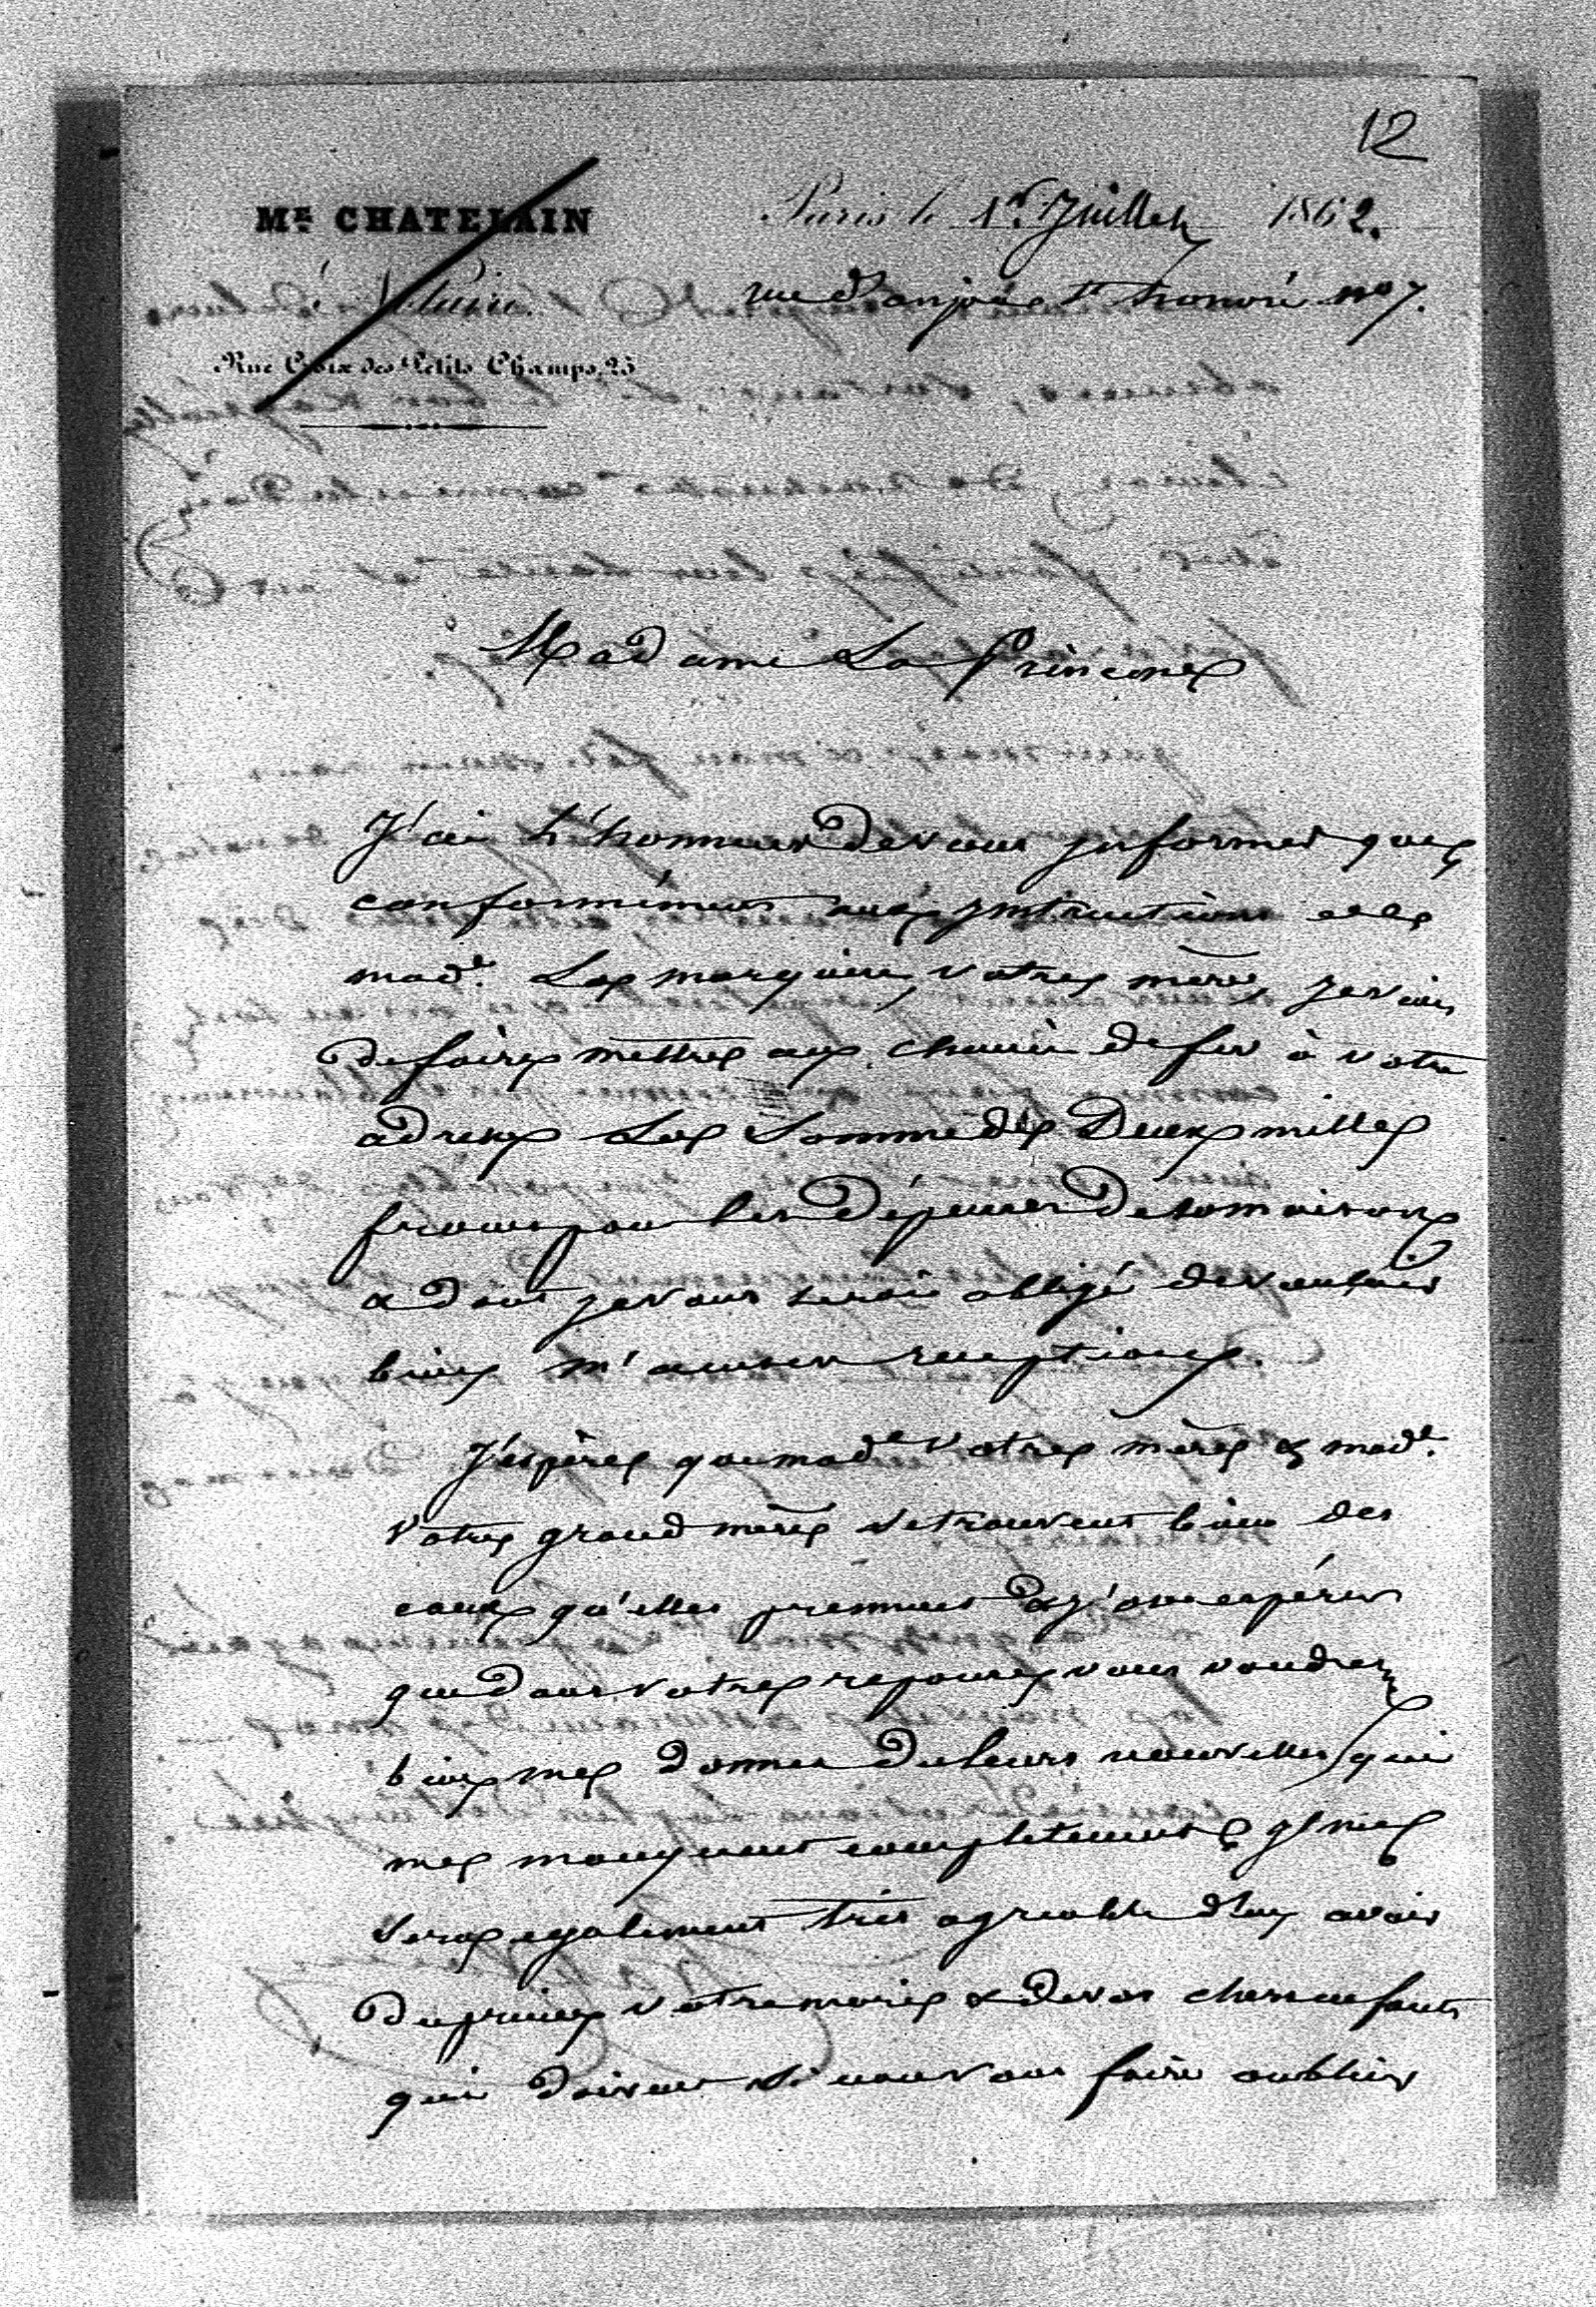 12
Mᴱ CHATELAIN
Paris le 1er Juillet 1862.
Notaire.
rue d'anjou St honoré no 7.
Rue Croix des Petits Champs, 25
Madame La Princesse
J'ai l'honneur de vous informer que
conformément aux instructions de
made. La marquise, votre mère, je viens
de faire mettre au chemin de fer à votre
adresse La Somme de Deux mille
francs pour les dépenses de sa maison
& dont je vous serai obligé de vouloir
bien m'accuser reception.
J'espère que made votre mère & made.
votre grand mère se trouvent bien des
eaux qu'elles prennent & j'ose espérer
que dans votre reponse vous voudrez
bien me donner de leurs nouvelles qui
me manquent completement, il me
sera egalement très agreable d'en avoir
du prince votre mari & de vos chers enfants
qui doivent si non vous faire oublier